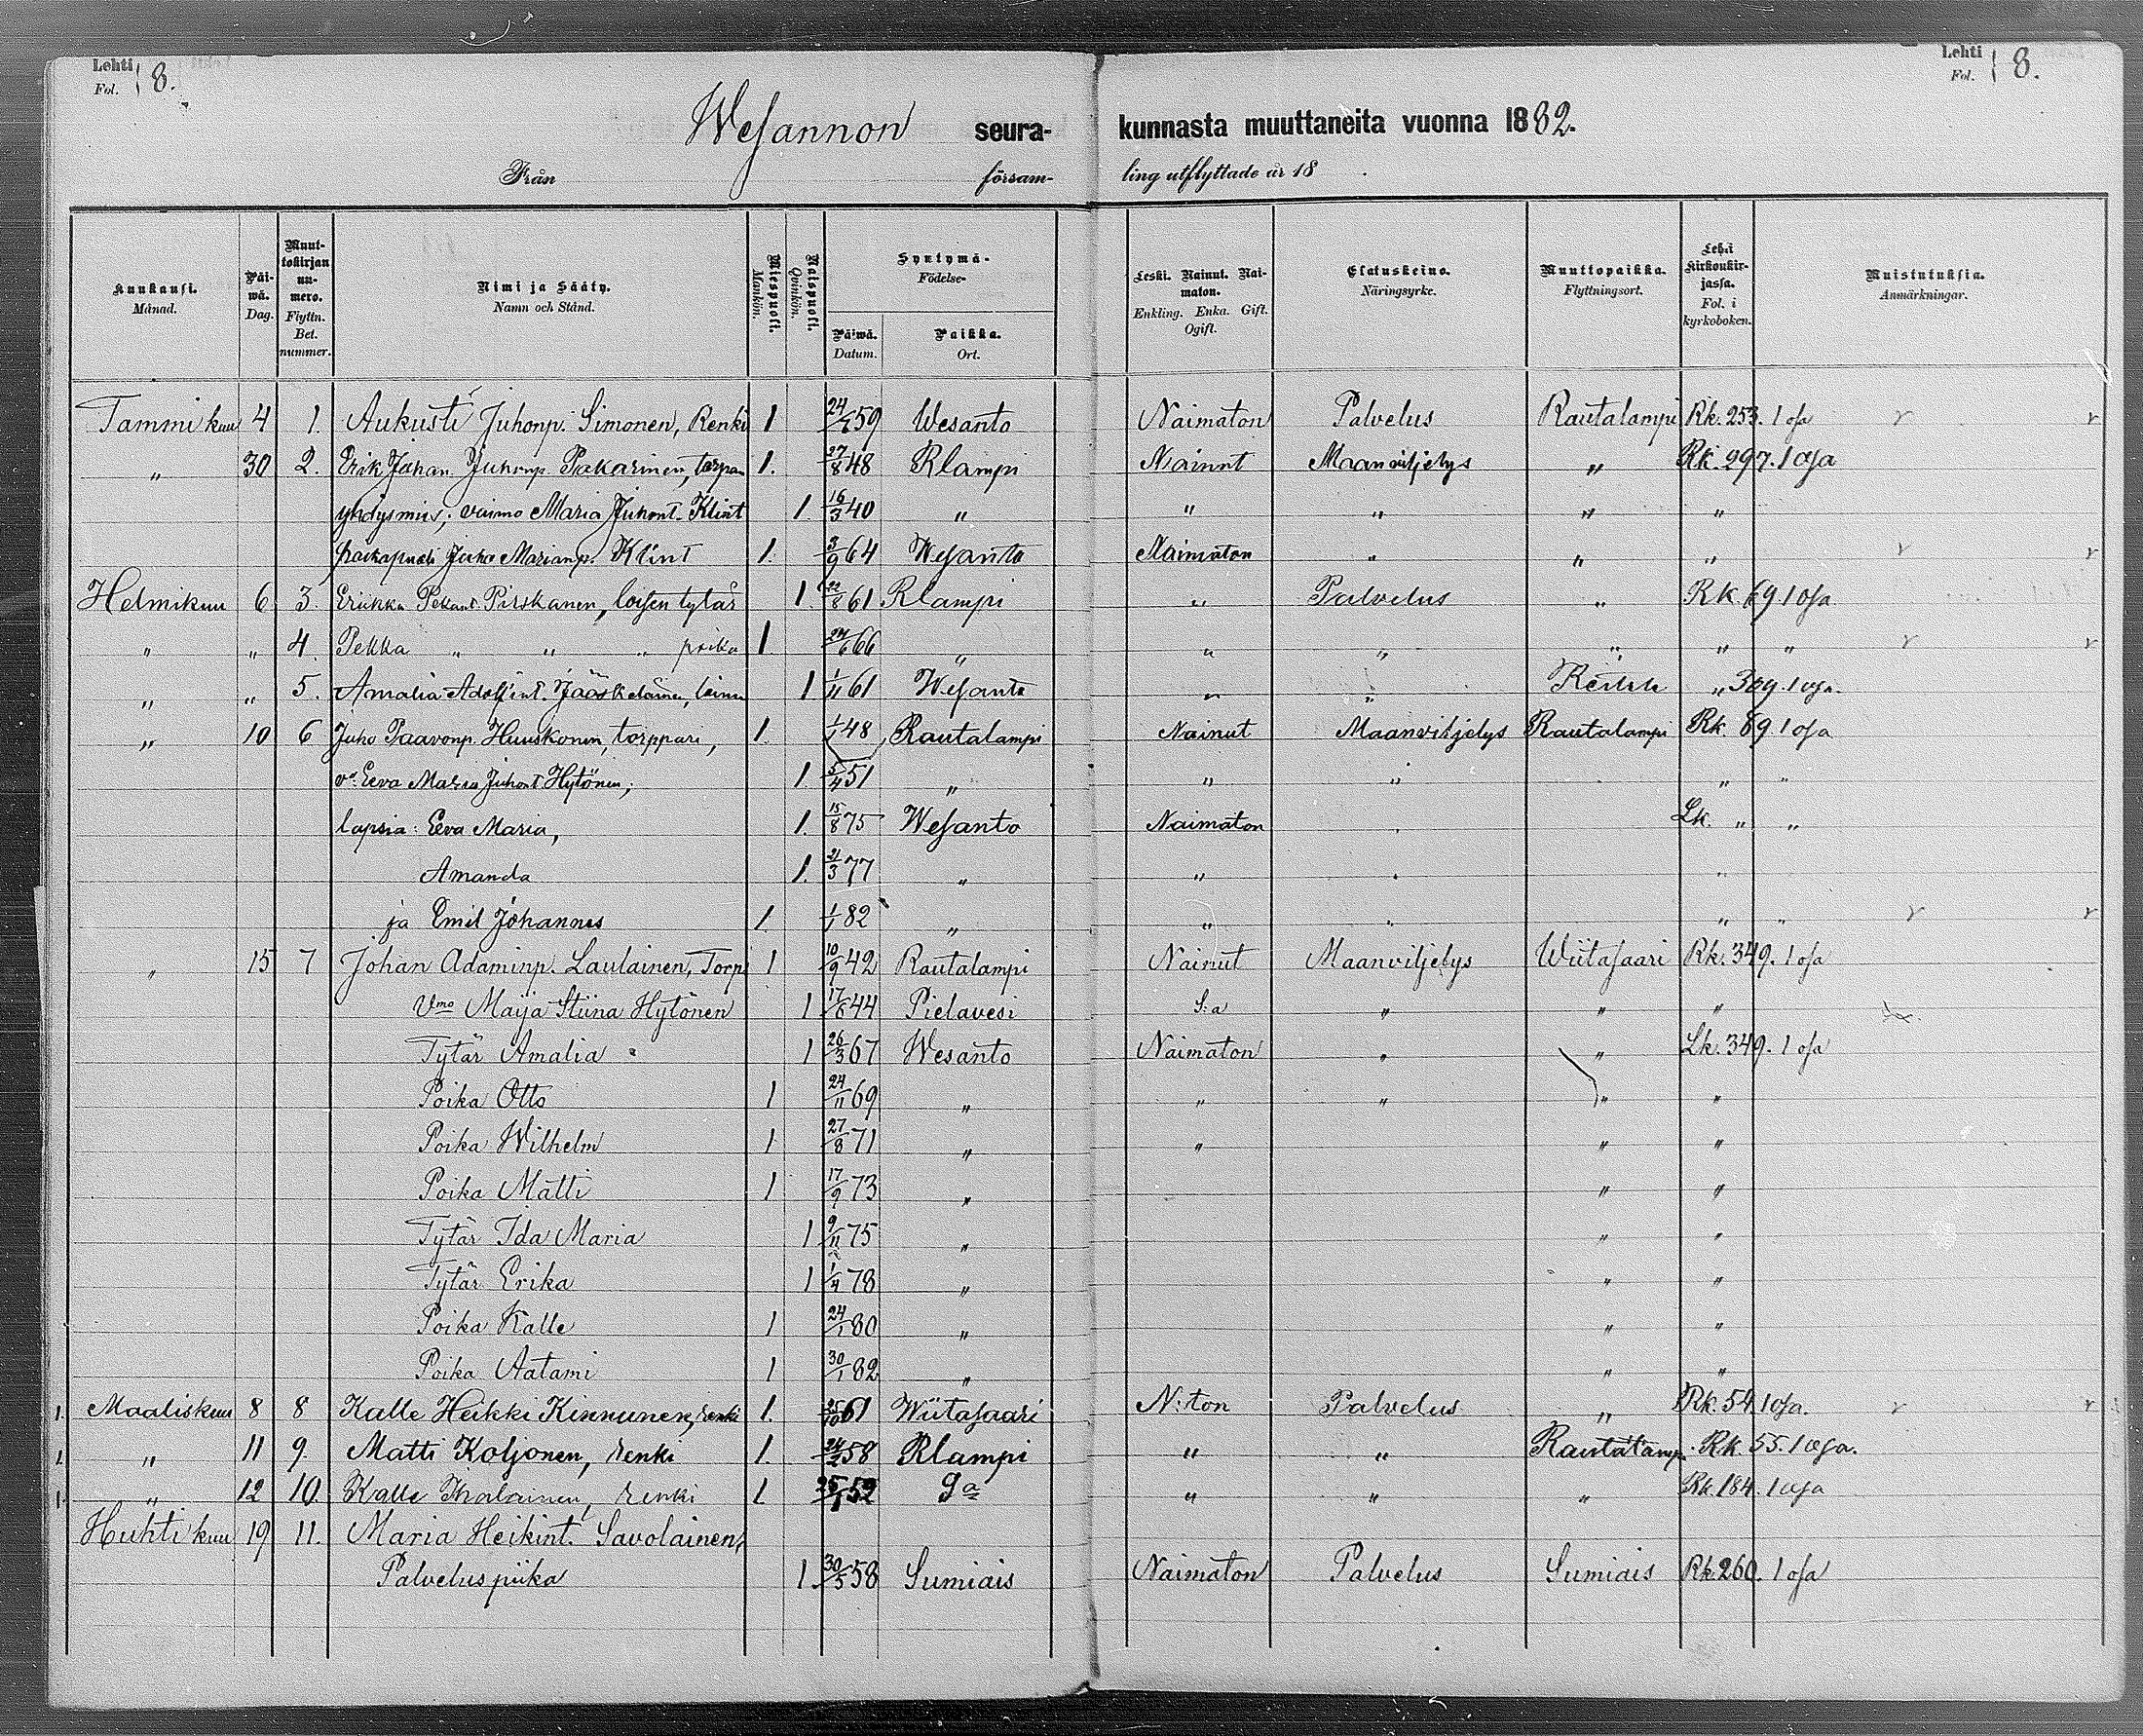 Lehti Fol. 8. Lehti Fol. 8.
Wesannon seura- kunnasta muuttaneita vuonna 1882.
Från försam- ling utflyttade år 18 .
Kuukausi. Månad. Päi-wä. Dag. Muut-tokirjan nu-mero. Flyttn. Bet. nummer. Nimi ja Sääty. Namn och Stånd. Miespuoli. Mankön. Naispuoli. Qvinkön. Syntymä- Födelse- Päiwä. Datum. Paikka. Ort. Leski. Nainut. Nai-maton. Enkling. Enka. Gift. Ogift. Elatuskeino. Näringsyrke. Muuttopaikka. Flyttningsort. Lehti kirkonkir-jassa. Fol. i kyrkoboken. Muistutuksia. Anmärkningar.
Tammikuu 4 1. Aukusti Juhonp. Simonen, Renki 1 24/ 59 Wesanto Naimaton Palvelus Rautalampi Rk. 253. 1 osa
" 30 2. Erik Johan Juhonp. Pakarinen, torpan 1. 27/8 48 Rlampi Nainut Maanviljelys " Rk. 297. 1 osa
yhdysmies; vaimo Maria Juhont. Klint 1. 16/3 40 " " " " "
poikapuoli Juho Marianp. Klint 1. 3/9 64 Wesanto Naimaton " " "
Helmikuu 6 3. Eriikka Pekant. Pirskanen, loisen tytär 1. 22/8 61 Rlampi " Palvelus " Rk 69 1 osa
" " 4. Pekka " " " poika 1. 24/6 66 " " " " " "
" " 5. Amalia Adolfint. Jääskeläinen, 1 1/11 61 Wesanto " " " 309. 1 osa.
" 10 6 Juho Paavonp. Huuskonen, torppari, 1. 1/1 48 Rautalampi Nainut Maanviljelys Rautalampi Rk. 89. 1 osa
vo Eeva Maria Juhont Hytönen; 1. 5/4 51 " " " " "
lapsia: Eeva Maria, 1. 15/8 75 Wesanto Naimaton Lk. " "
Amanda 1. 21/3 77 " " " "
ja Emil Johannes 1 1/1 82 " " " " "
" 15 7 Johan Adaminp. Laulainen, Torp 1 10/9 42 Rautalampi Nainut Maanviljelys Wiitasaari Rk. 349. 1 osa
Vmo Maija Stiina Hytönen 1 17/8 44 Pielavesi S:a " " "
Tytär Amalia " 1 26/3 67 Wesanto Naimaton " " Lk. 349. 1 osa
Poika Otto 1 24/11 69 " " " " "
Poika Wilhelm 1 27/8 71 " " " "
Poika Matti 1 17/9 73 " " "
Tytär Ida Maria 1 9/11 75 " " "
Tytär Erika 1 1/4 78 " " "
Poika Kalle 1 24/1 80 " " "
Poika Aatami 1 30/1 82 " " "
1. Maaliskuu 8 8 Kalle Heikki Kinnunen, renki 1. 25/10 61 Wiitasaari N:ton Palvelus " Rk. 54. 1 osa.
1. " 11 9. Matti Koljonen, renki 1. 58 Rlampi " " Rautalamp. Rk. 55. 1 osa.
1. " 12 10. Kalle renki 1 52 " " " Rk. 184. 1 osa
Huhtikuu 19 11. Maria Heikint. Savolainen,
Palvelus piika 1. 30/5 58 Sumiais Naimaton Palvelus Sumiais Rk. 260. 1 osa